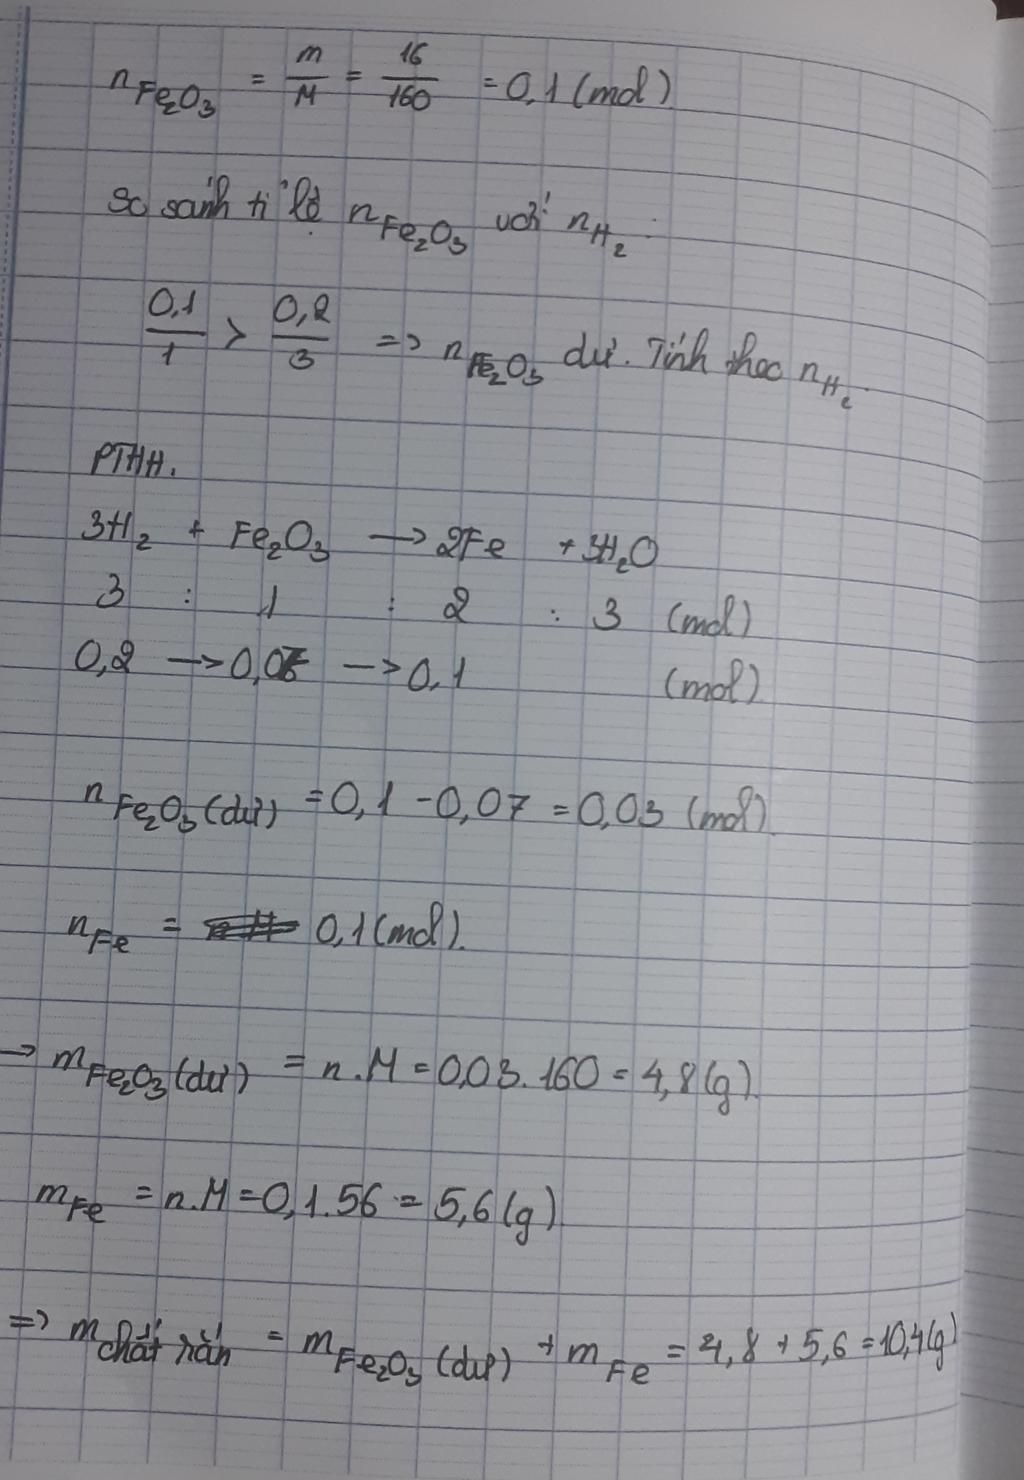 n Fe2O3 = m/M = 16/160 = 0,1 (mol)
So sánh tỉ lệ n Fe2O3 với n H2.
0,1/1 > 0,2/3 => n Fe2O3 dư. Tính theo n H2.
PTHH.
3H2 + Fe2O3 -> 2Fe + 3H2O
3 : 1 : 2 : 3 (mol)
0,2 -> 0,07 -> 0,1 (mol)
n Fe2O3 (dư) = 0,1 - 0,07 = 0,03 (mol).
n Fe = 0,1 (mol).
-> m Fe2O3 (dư) = n.M = 0,03.160 = 4,8 (g).
m Fe = n.M = 0,1.56 = 5,6 (g)
=> m chất rắn = m Fe2O3 (dư) + m Fe = 4,8 + 5,6 = 10,4 (g)